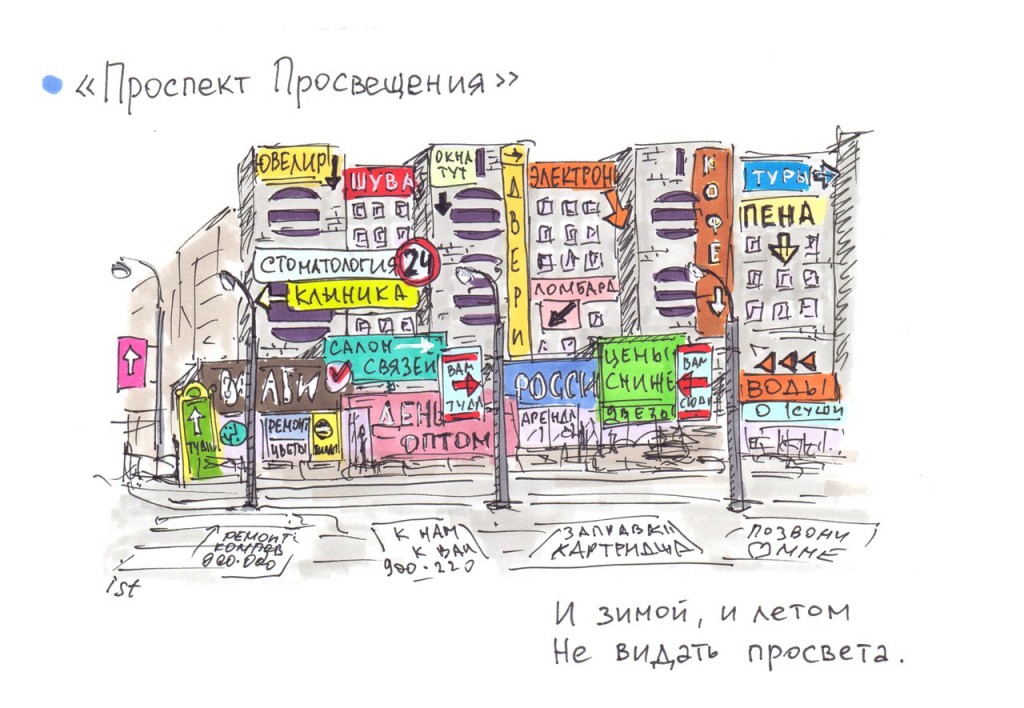 «Проспект Просвещения»
ЮВЕЛИР
ШУВА
ОКНА
ТУТ
ДВЕРИ
ЭЛЕКТРОН
КОФЕ
ТУРЫ
ПЕНА
СТОМАТОЛОГИЯ
24
КЛИНИКА
ЛОМБАРД
САЛОН
СВЯЗЕЙ
ВАМ
ТУДА
РОССИ
ЦЕНЫ
СНИЖЕ
ВАМ
СЮДА
ВОДЫ
О СУШИ
АБИ
ДЕНЬ
ОПТОМ
АРЕНДА
РЕМОНТ
ЦВЕТЫ
РЕМОНТ
КОМПОВ
900-000
К НАМ
К ВАМ
900-220
ЗАПРАВКИ
КАРТРИДША
ПОЗВОНИ
МНЕ
ist
И зимой, и летом
Не видать просвета.